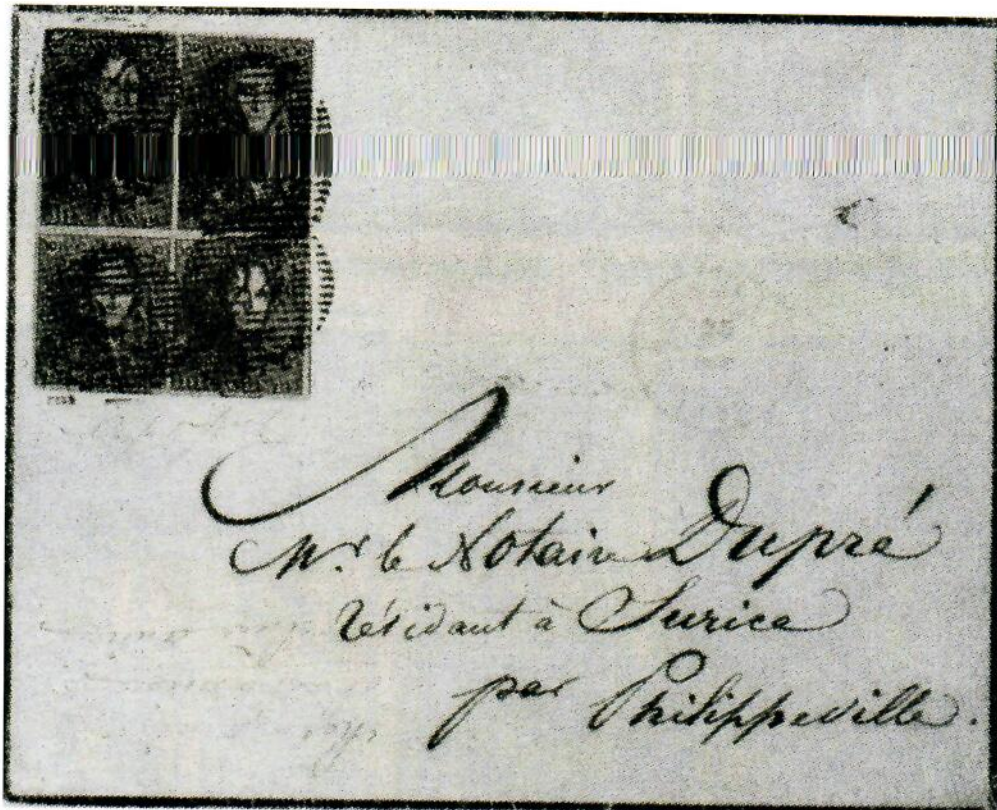 Monsieur
Mr. le Notaire Dupré
résidant à Surice
par Philippeville.